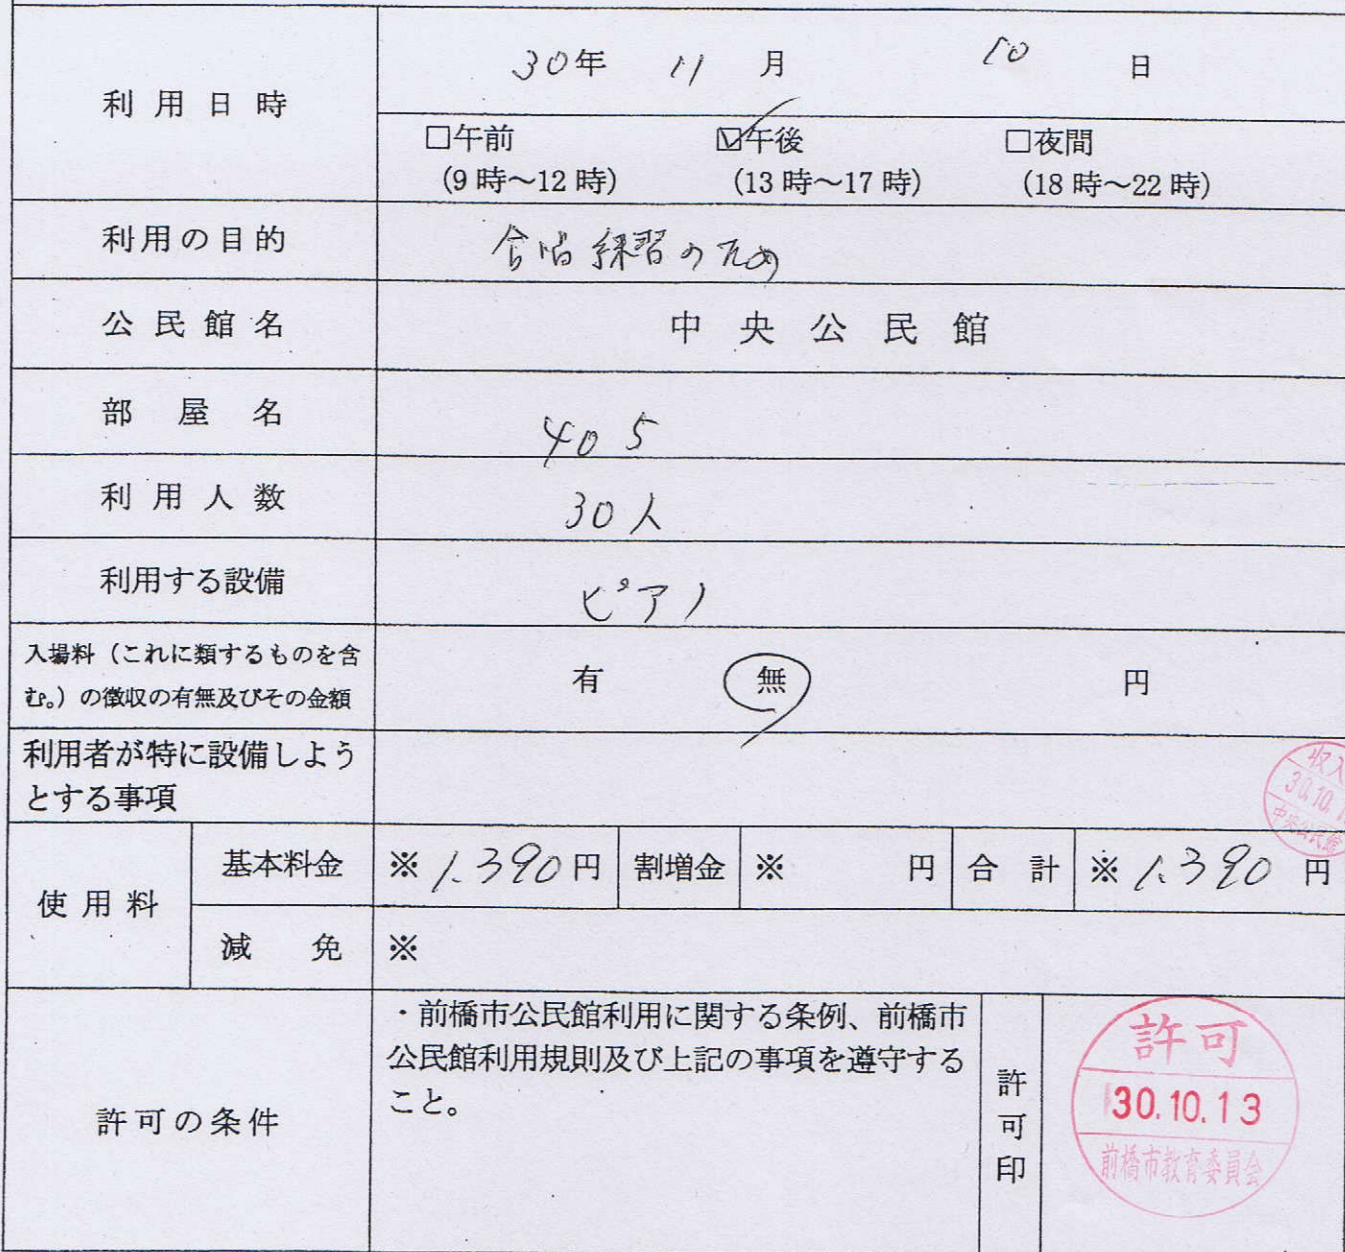 利用日時
30年 11 月 10 日
□午前 ☑午後 □夜間
(9時～12時) (13時～17時) (18時～22時)
利用の目的 合唱練習のため
公民館名 中央公民館
部屋名 405
利用人数 30人
利用する設備 ピアノ
入場料（これに類するものを含
む。）の徴収の有無及びその金額
有 無 円
利用者が特に設備しよう
とする事項
収入
30.10.1
中央公民館
使用料
基本料金 ※ 1.390円 割増金 ※ 円 合計 ※ 1.390 円
減免 ※
許可の条件
・前橋市公民館利用に関する条例、前橋市
公民館利用規則及び上記の事項を遵守する
こと。
許可印
許可
30.10.13
前橋市教育委員会